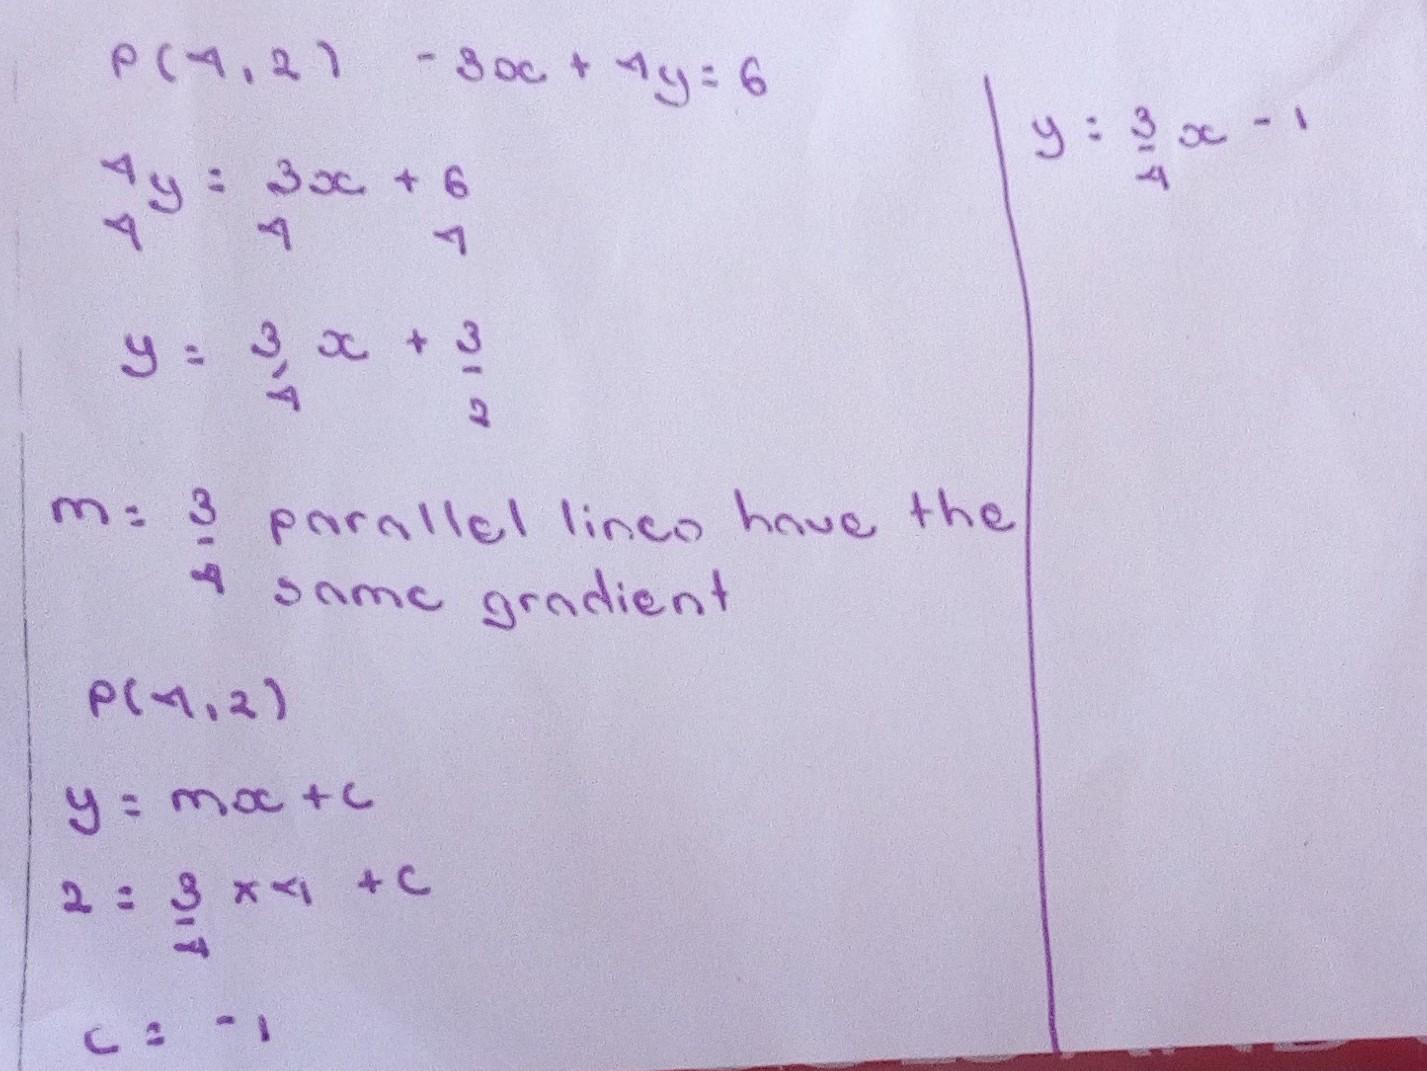 P(4,2) -3x + 4y = 6
4y = 3x + 6
4 4 4
y = 3/4 x + 3/2
m = 3/4 parallel lines have the
same gradient
P(4,2)
y = mx + c
2 = 3/4 × 4 + c
c = -1
y = 3/4 x - 1